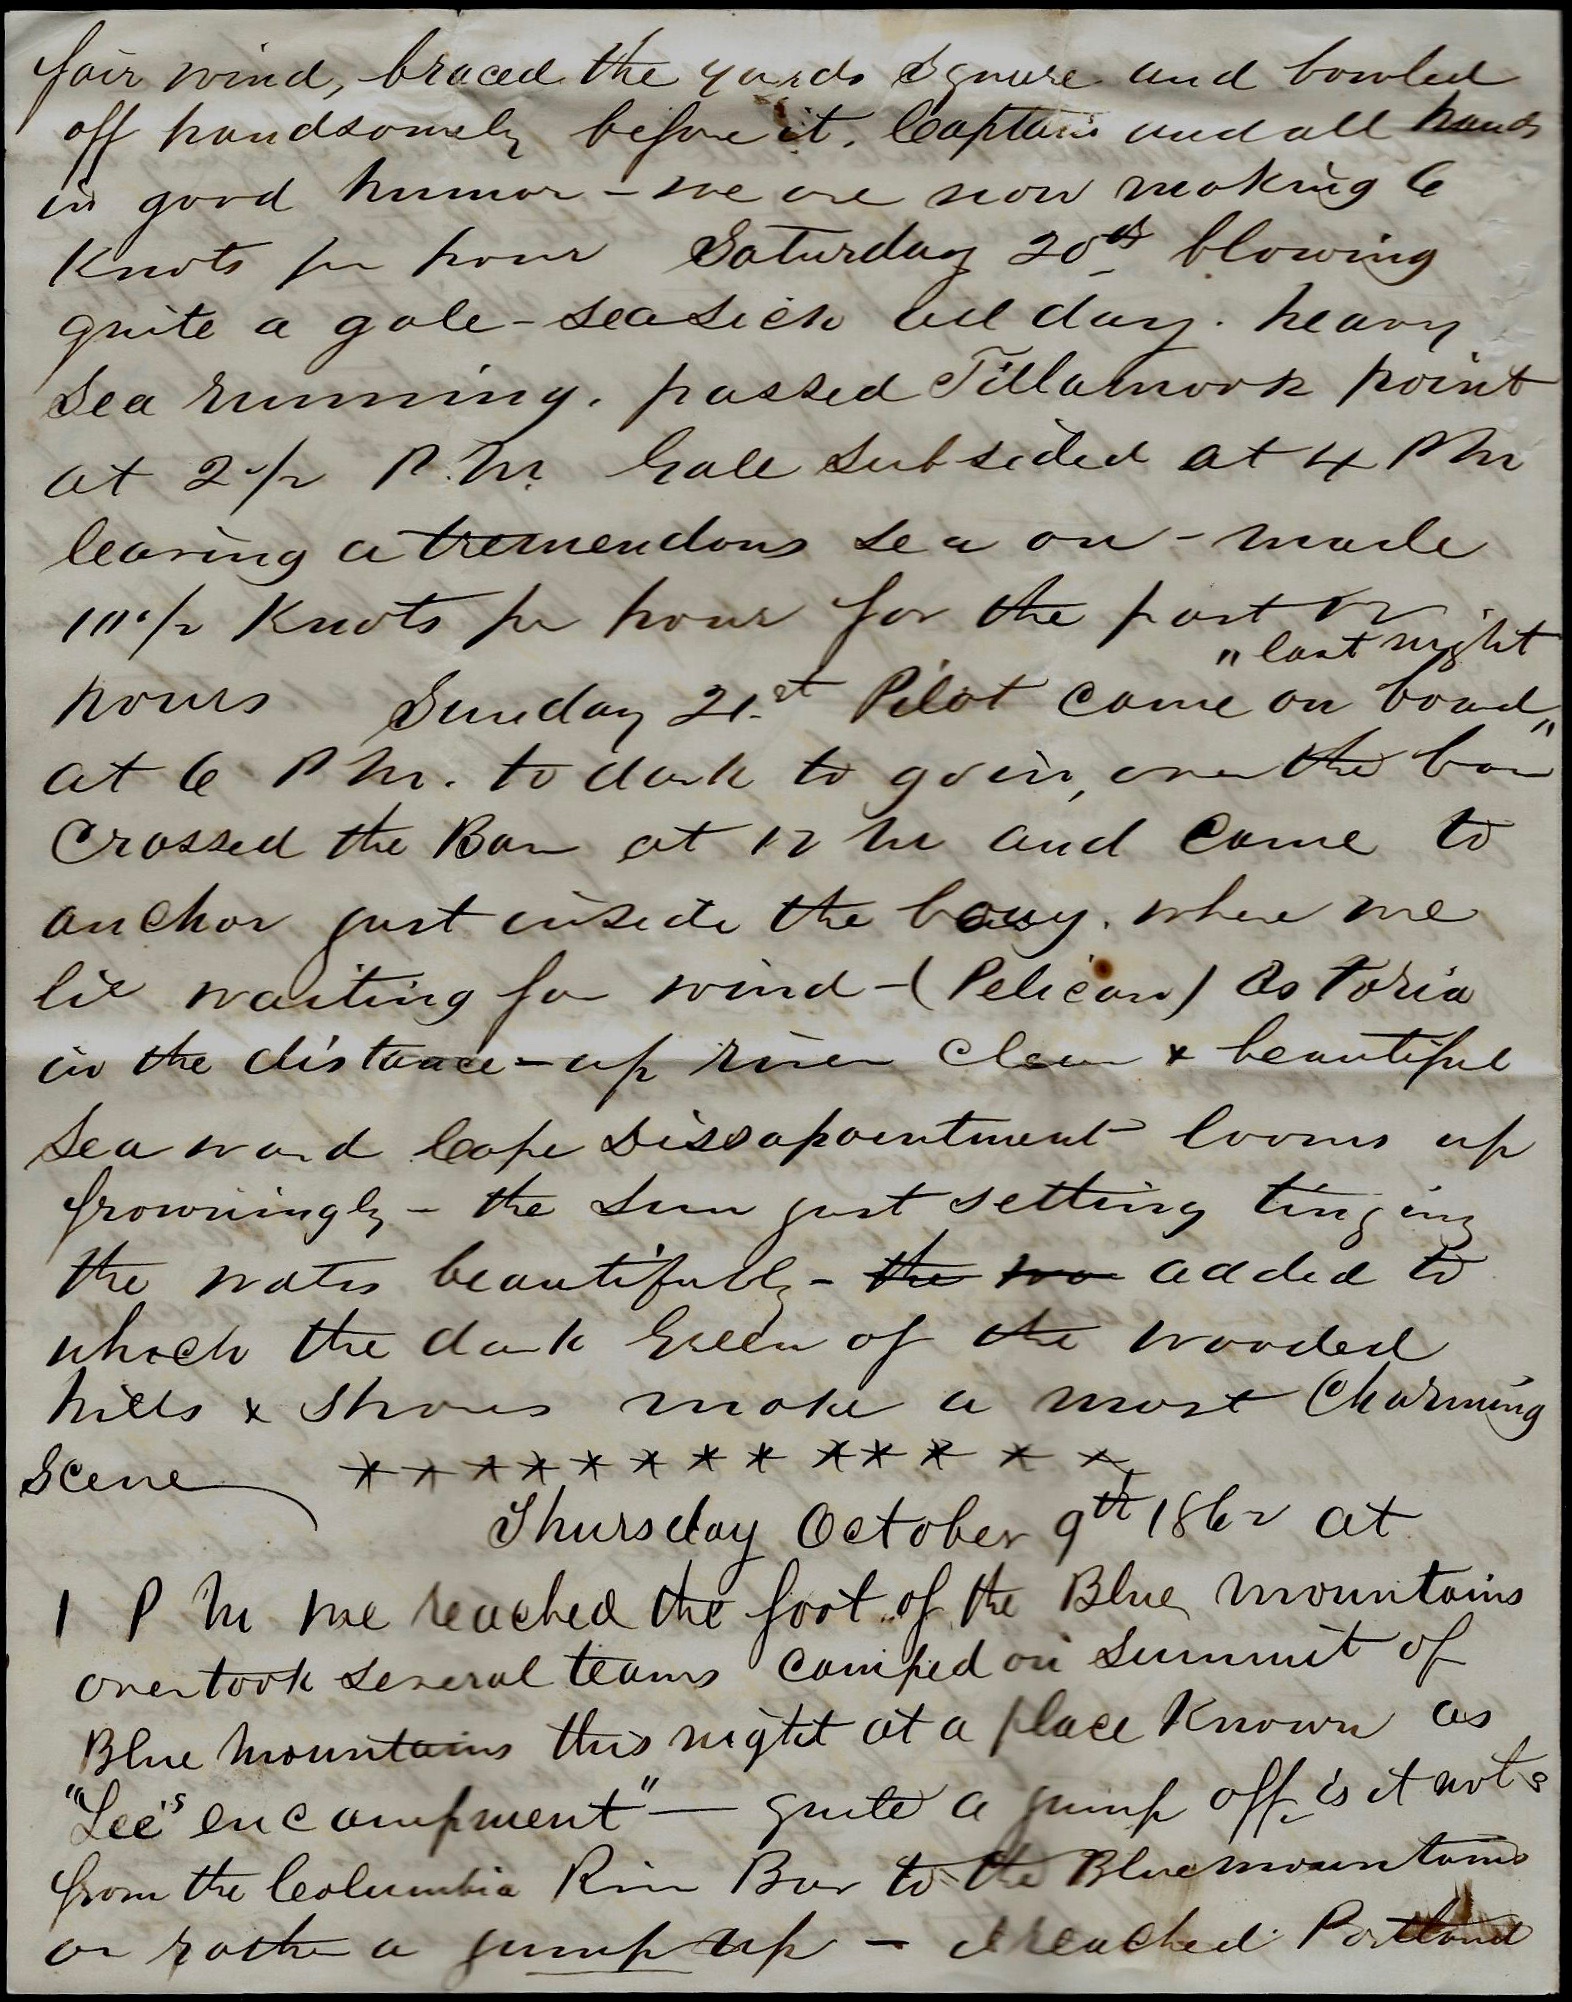 fair wind, braced the yards square and bowled
off handsomely before it. Captain and all hands
in good humor - we are now making 6
Knots pr hour Saturday 20th blowing
quite a gale - seasick all day. heavy
sea running. passed Tillamook point
at 2 1/2 P.M. Gale subsided at 4 PM
leaving a tremendous sea on - made
10 1/2 Knots pr hour for the past 12
"last night
hours Sunday 21.st Pilot came on board"
at 6 PM. to dark to go in, over the bar
Crossed the Bar at 12 M and came to
anchor just inside the bouy. where we
lie waiting for wind - (Pelican) Astoria
in the distance - up river clear & beautiful
Sea ward Cape Dissapointment looms up
frowningly - the sun just setting tinging
the waters beautifully - the wa added to
which the dark Green of the wooded
hills & shores make a most Charming
Scene * * * * * * * * * * * * *
Thursday October 9th 1862 at
1 P M we reached the foot of the Blue mountains
overtook several teams camped on summit of
Blue mountains this night at a place Known as
"Lee's encampment" — quite a jump off is it not?
from the Columbia River Bar to the Blue mountains
or rather a jump up - I reached Portland